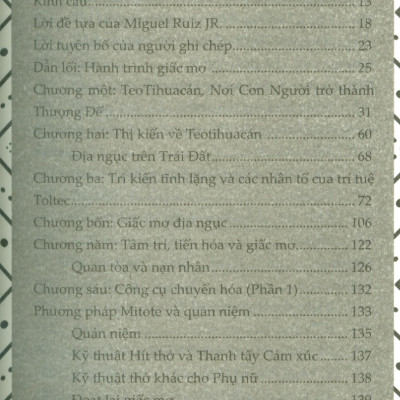 Kinh cầu 13
Lời đề tựa của Miguel Ruiz JR. 18
Lời tuyên bố của người ghi chép 23
Dẫn lối: Hành trình giấc mơ 25
Chương một: TeoTihuacán, Nơi Con Người trở thành
Thượng Đế 31
Chương hai: Thị kiến về Teotihuacán 60
Địa ngục trên Trái Đất 68
Chương ba: Tri kiến tĩnh lặng và các nhân tố của trí tuệ
Toltec 72
Chương bốn: Giấc mơ địa ngục 106
Chương năm: Tâm trí, tiến hóa và giấc mơ 122
Quan tòa và nạn nhân 126
Chương sáu: Công cụ chuyển hóa (Phần 1) 132
Phương pháp Mitote và quán niệm 133
Quán niệm 135
Kỹ thuật Hít thở và Thanh tẩy Cảm xúc 137
Kỹ thuật thở khác cho Phụ nữ 138
Đoạt lại giấc mơ 139